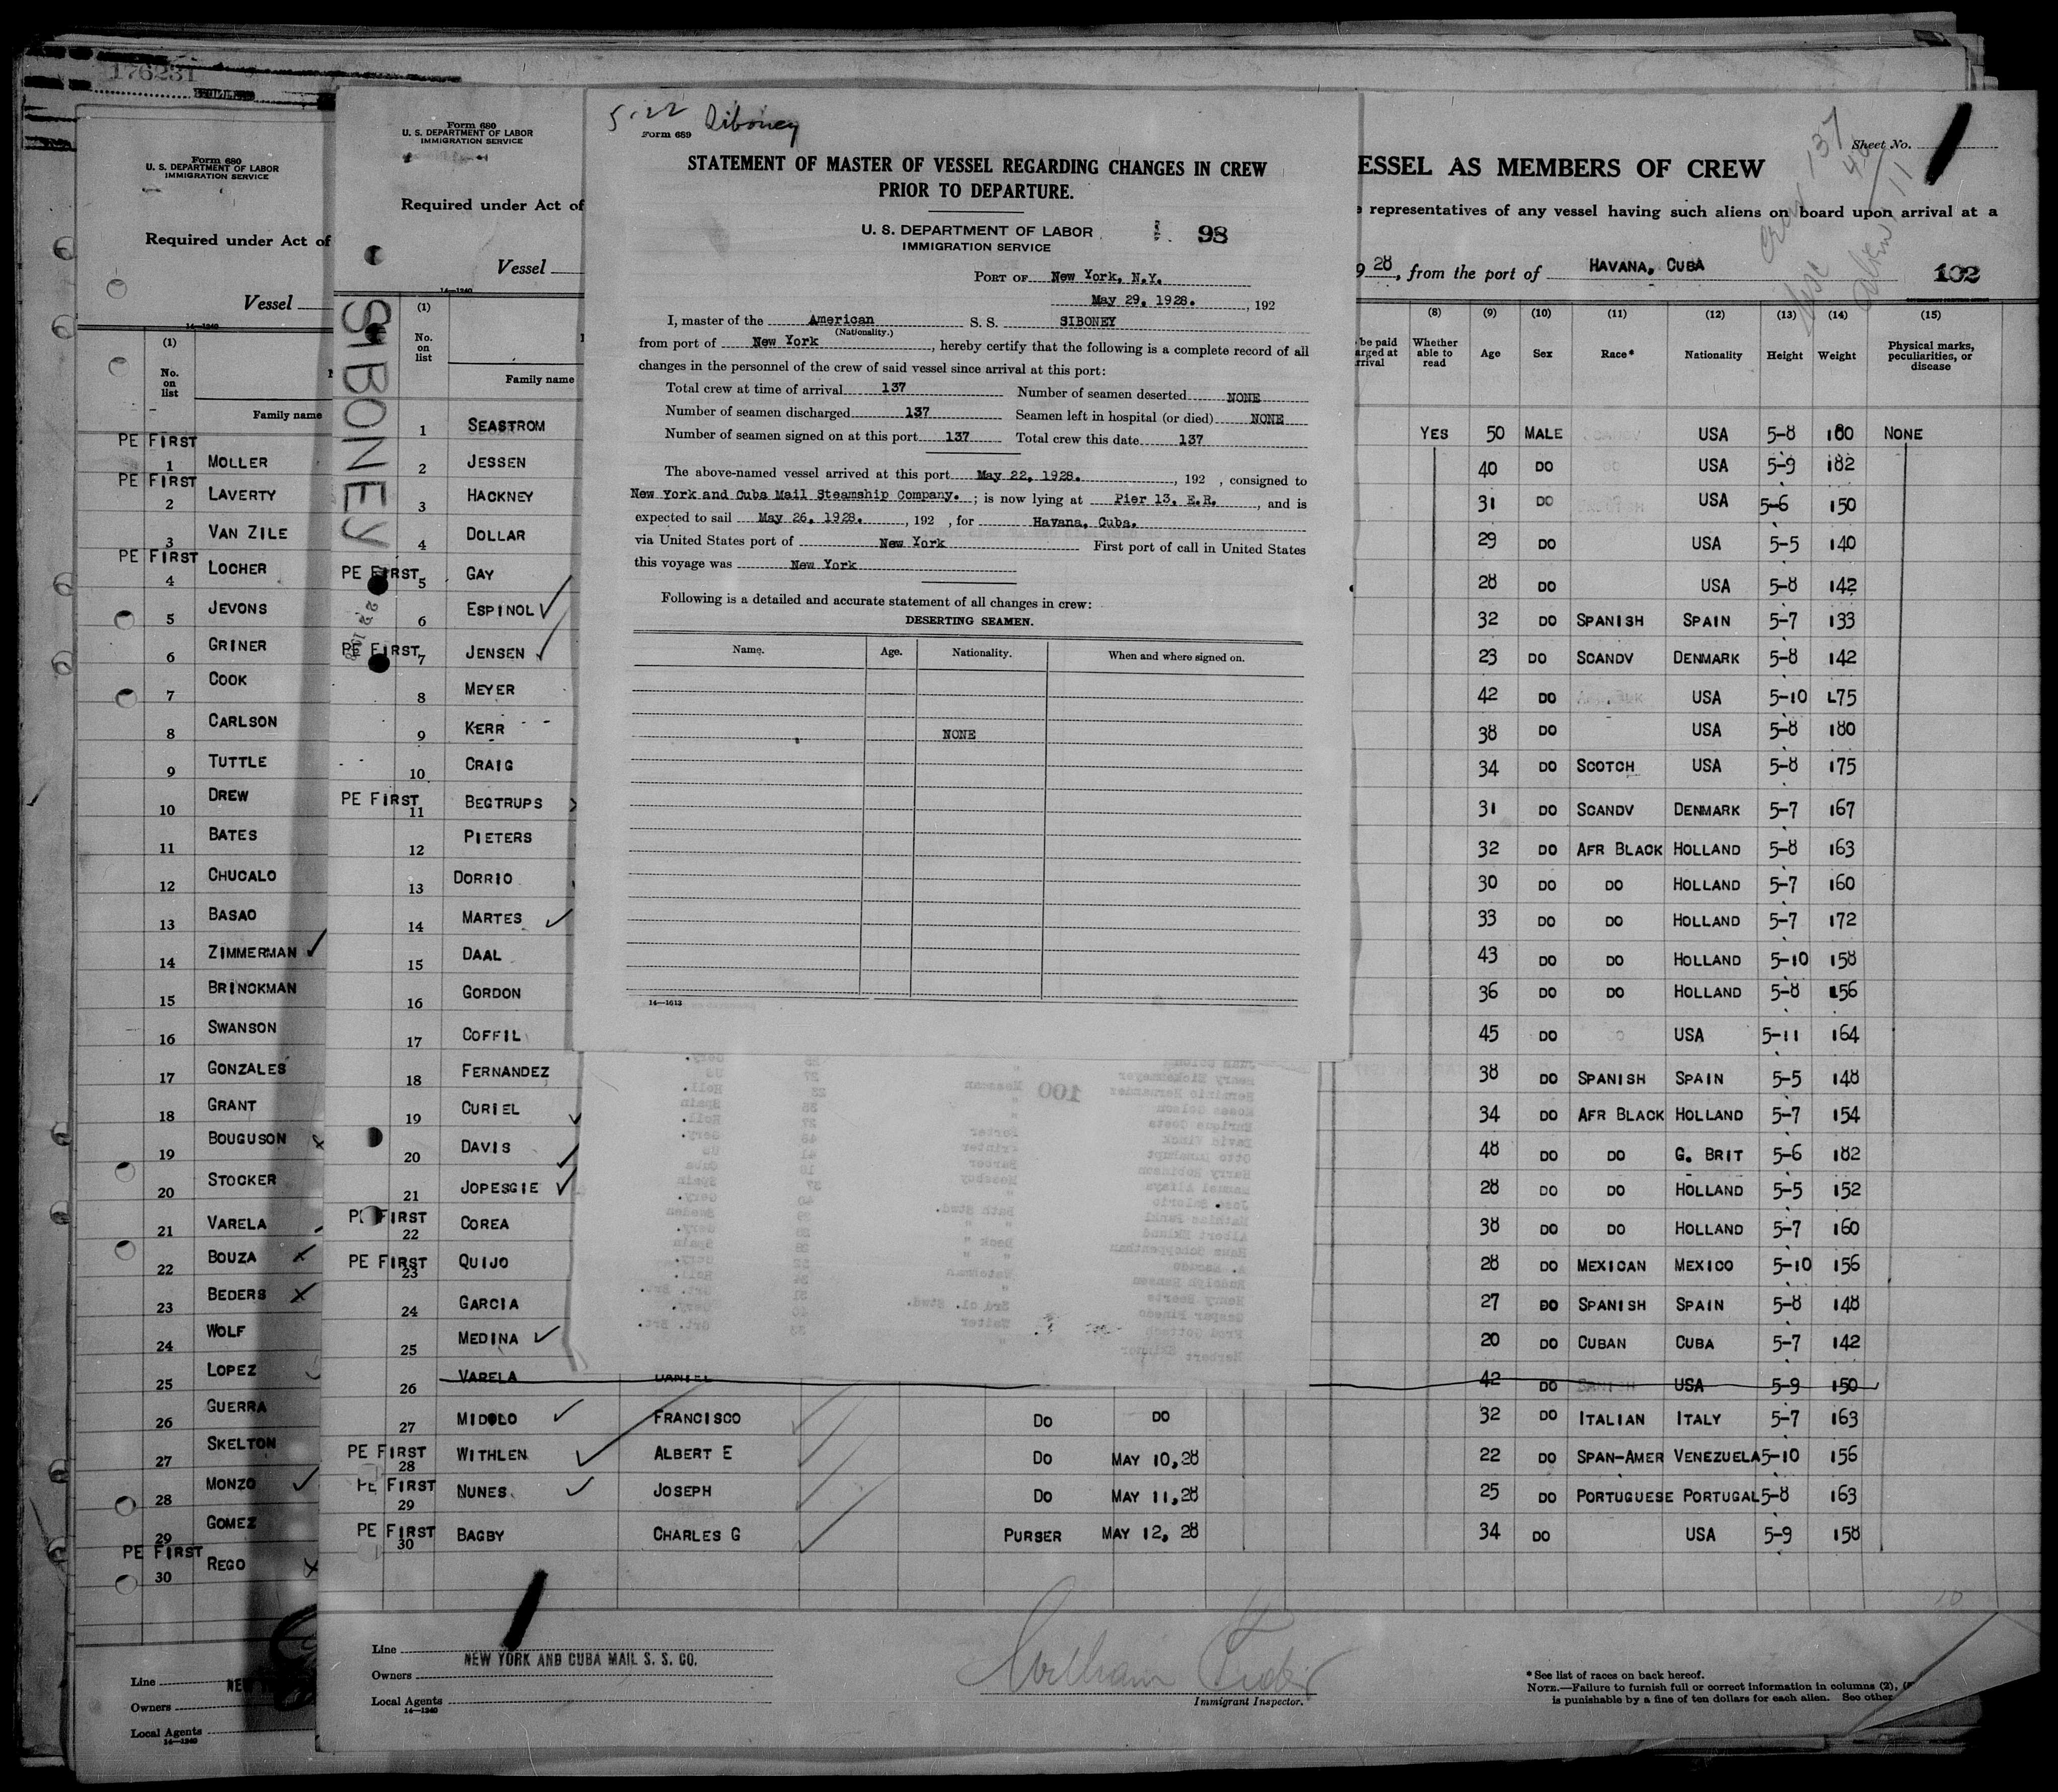 176231
Form 680
U. S. DEPARTMENT OF LABOR
IMMIGRATION SERVICE
Required under Act of
Vessel
14—1240
(1)
No. on list
Family name
PE FIRST
1 MOLLER
PE FIRST
2 LAVERTY
3 VAN ZILE
PE FIRST
4 LOCHER
5 JEVONS
6 GRINER
7 COOK
8 CARLSON
9 TUTTLE
10 DREW
11 BATES
12 CHUCALO
13 BASAO
14 ZIMMERMAN
15 BRINCKMAN
16 SWANSON
17 GONZALES
18 GRANT
19 BOUGUSON
20 STOCKER
21 VARELA
22 BOUZA
23 BEDERS
24 WOLF
25 LOPEZ
26 GUERRA
27 SKELTON
28 MONZO
29 GOMEZ
PE FIRST
30 REGO
Line
Owners
Local Agents
14—1240
Form 680
U. S. DEPARTMENT OF LABOR
IMMIGRATION SERVICE
Required under Act of
Vessel
14—1240
SIBONEY
(1)
No. on list
Family name
1 SEASTROM
2 JESSEN
3 HACKNEY
4 DOLLAR
PE FIRST 5 GAY
6 ESPINOL
PE FIRST 7 JENSEN
8 MEYER
9 KERR
10 CRAIG
PE FIRST 11 BEGTRUPS
12 PIETERS
13 DORRIO
14 MARTES
15 DAAL
16 GORDON
17 COFFIL
18 FERNANDEZ
19 CURIEL
20 DAVIS
21 JOPESGIE
PE FIRST 22 COREA
PE FIRST 23 QUIJO
24 GARCIA
25 MEDINA
26 VARELA DANIEL
27 MIDOLO FRANCISCO DO DO
PE FIRST 28 WITHLEN ALBERT E DO MAY 10,28
PE FIRST 29 NUNES JOSEPH DO MAY 11,28
PE FIRST 30 BAGBY CHARLES G PURSER MAY 12, 28
Line
NEW YORK AND CUBA MAIL S. S. CO.
Owners
Local Agents
14—1240
Immigrant Inspector.
5-22 Siboney
Form 689
STATEMENT OF MASTER OF VESSEL REGARDING CHANGES IN CREW
PRIOR TO DEPARTURE.
U. S. DEPARTMENT OF LABOR
IMMIGRATION SERVICE
98
PORT OF New York, N.Y.
May 29, 1928. , 192
I, master of the American S. S. SIBONEY
(Nationality.)
from port of New York , hereby certify that the following is a complete record of all
changes in the personnel of the crew of said vessel since arrival at this port:
Total crew at time of arrival 137 Number of seamen deserted NONE
Number of seamen discharged 137 Seamen left in hospital (or died) NONE
Number of seamen signed on at this port 137 Total crew this date 137
The above-named vessel arrived at this port May 22, 1928. , 192 , consigned to
New York and Cuba Mail Steamship Company. ; is now lying at Pier 13, E.R. , and is
expected to sail May 26, 1928. , 192 , for Havana, Cuba.
via United States port of New York First port of call in United States
this voyage was New York
Following is a detailed and accurate statement of all changes in crew:
DESERTING SEAMEN.
Name. Age. Nationality. When and where signed on.
NONE
14—1613
100
ESSEL AS MEMBERS OF CREW
Sheet No.
representatives of any vessel having such aliens on board upon arrival at a
28 , from the port of HAVANA, CUBA
Crew 137
102
(8) (9) (10) (11) (12) (13) (14) (15)
Whether able to read Age Sex Race* Nationality Height Weight Physical marks, peculiarities, or disease
YES 50 MALE USA 5-8 180 NONE
40 DO USA 5-9 182
31 DO USA 5-6 150
29 DO USA 5-5 140
28 DO USA 5-8 142
32 DO SPANISH SPAIN 5-7 133
23 DO SCANDV DENMARK 5-8 142
42 DO USA 5-10 175
38 DO USA 5-8 180
34 DO SCOTCH USA 5-8 175
31 DO SCANDV DENMARK 5-7 167
32 DO AFR BLACK HOLLAND 5-8 163
30 DO DO HOLLAND 5-7 160
33 DO DO HOLLAND 5-7 172
43 DO DO HOLLAND 5-10 158
36 DO DO HOLLAND 5-8 156
45 DO USA 5-11 164
38 DO SPANISH SPAIN 5-5 148
34 DO AFR BLACK HOLLAND 5-7 154
48 DO DO G. BRIT 5-6 182
28 DO DO HOLLAND 5-5 152
38 DO DO HOLLAND 5-7 160
28 DO MEXICAN MEXICO 5-10 156
27 DO SPANISH SPAIN 5-8 148
20 DO CUBAN CUBA 5-7 142
42 DO USA 5-9 150
32 DO ITALIAN ITALY 5-7 163
22 DO SPAN-AMER VENEZUELA 5-10 156
25 DO PORTUGUESE PORTUGAL 5-8 163
34 DO USA 5-9 158
*See list of races on back hereof.
NOTE.—Failure to furnish full or correct information in columns (2),
is punishable by a fine of ten dollars for each alien. See other